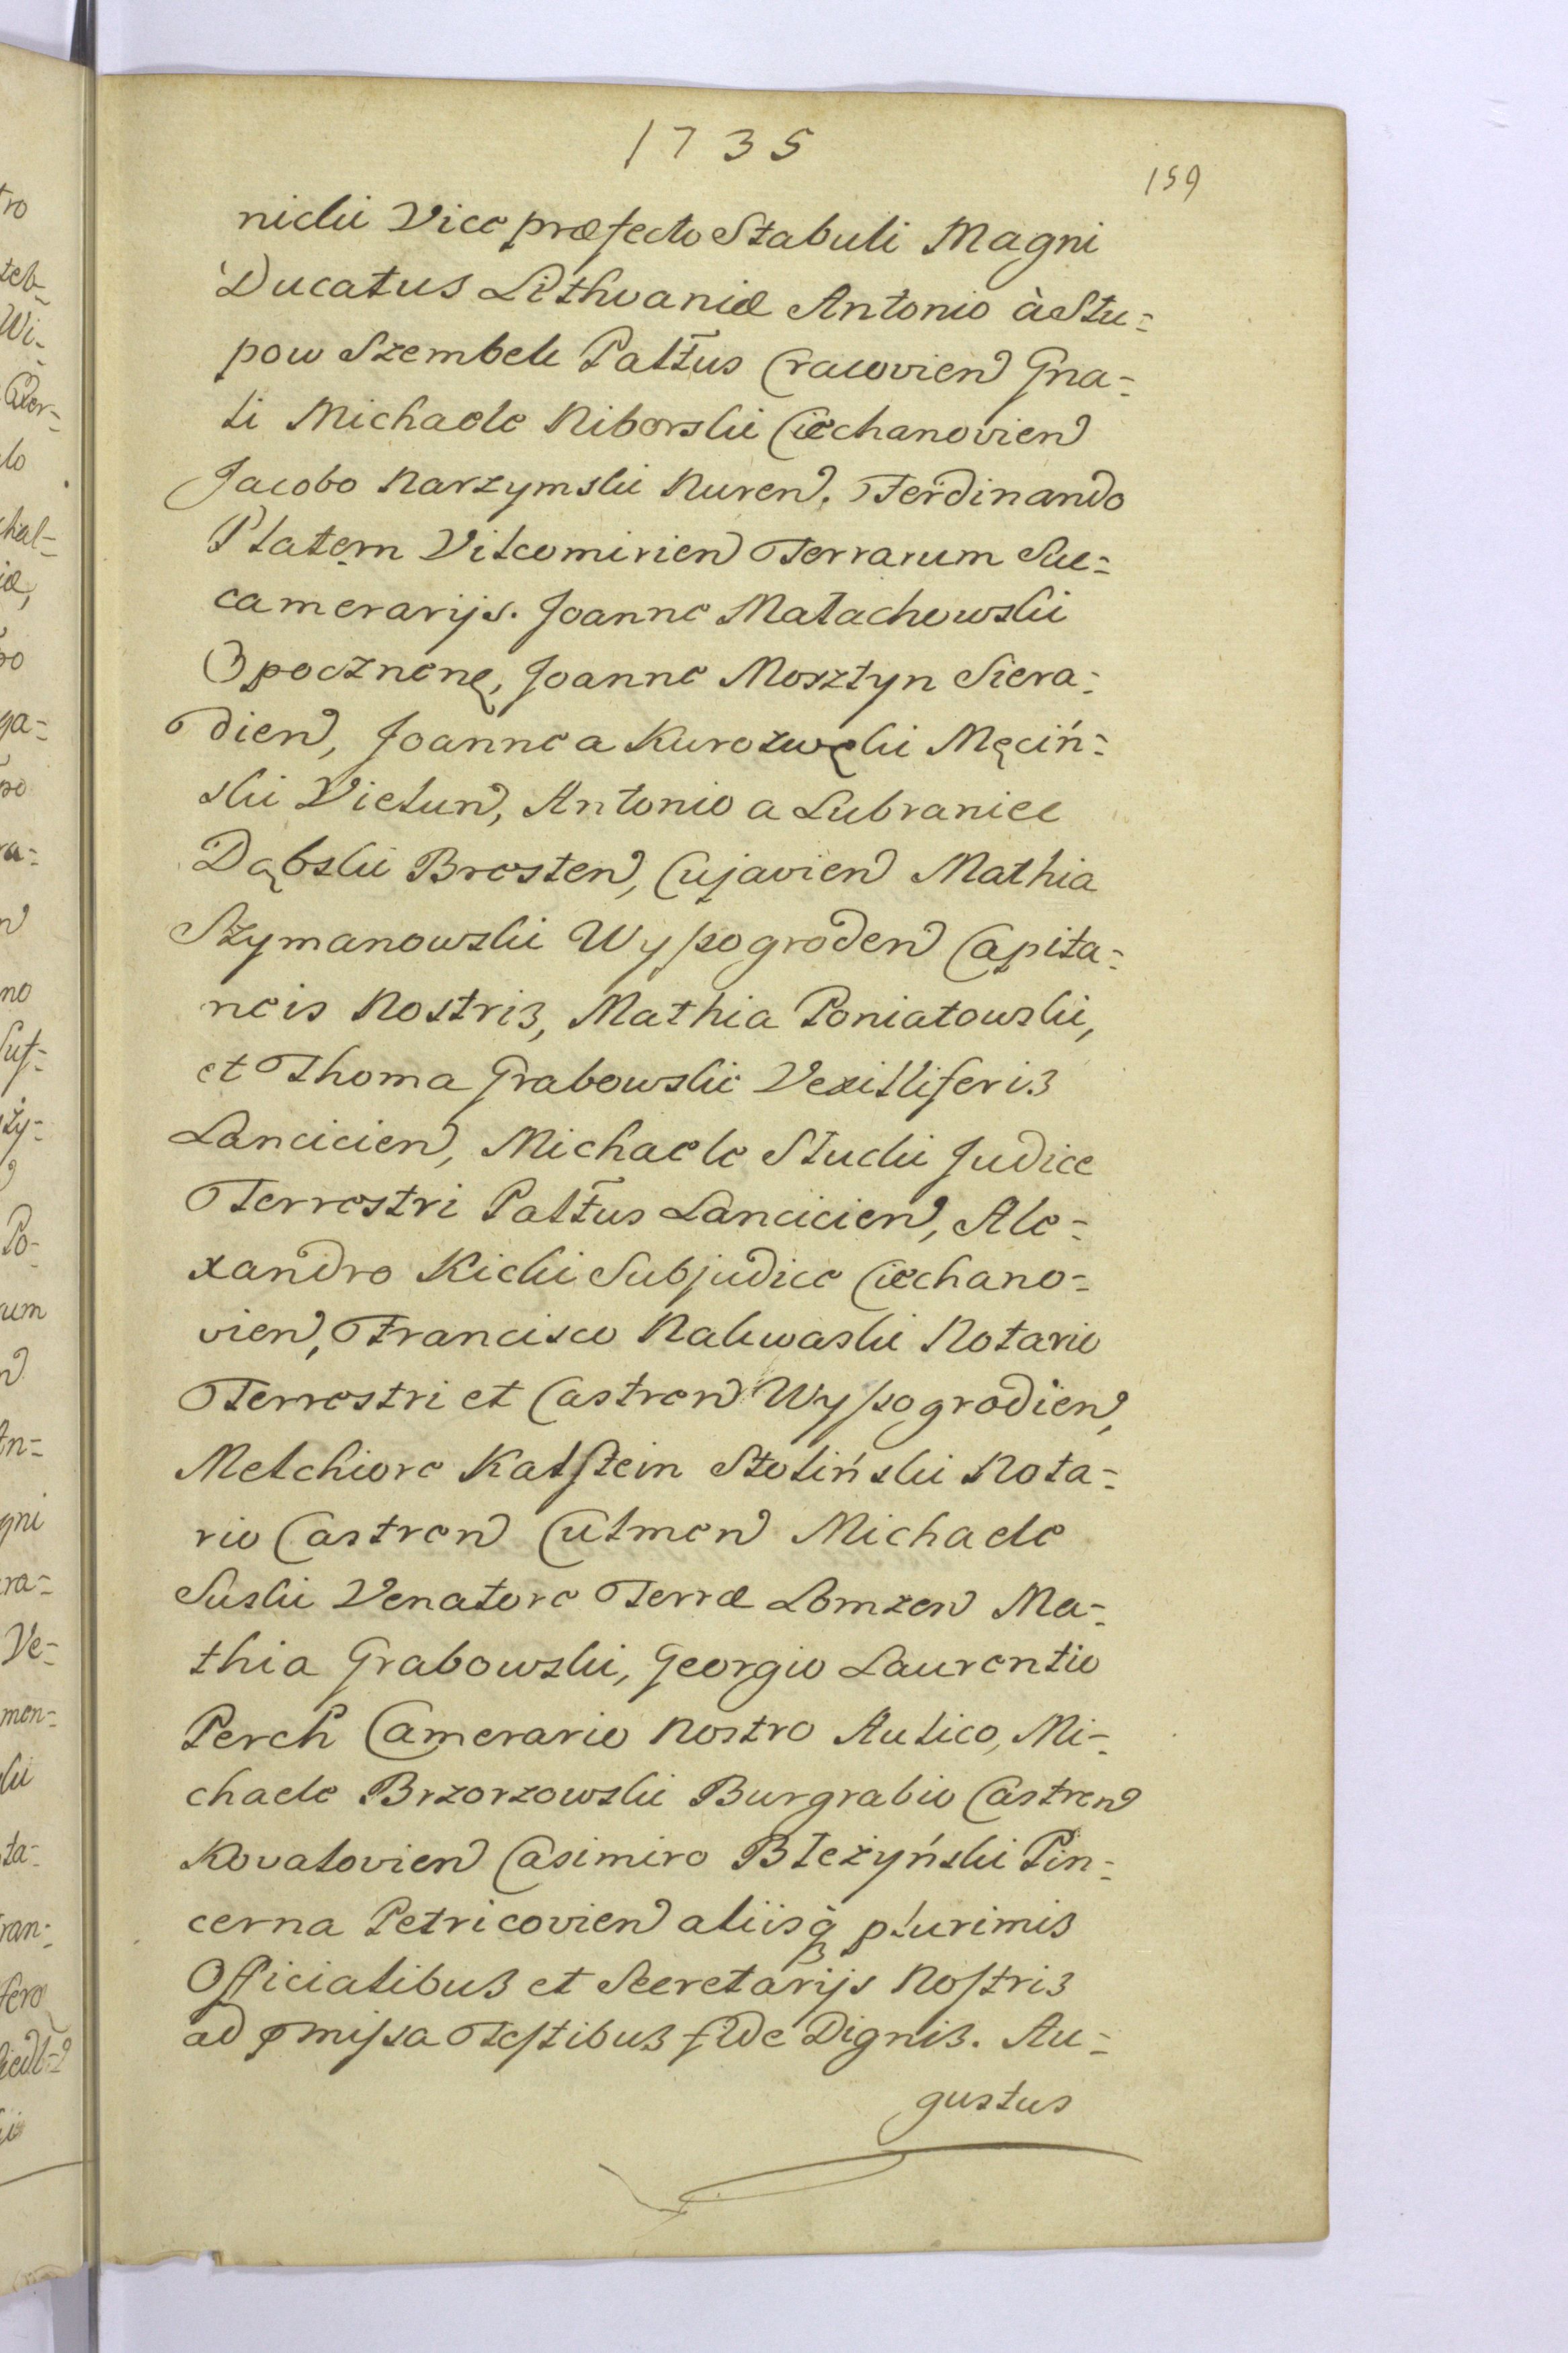 1735
159
nicki Vice præfecto Stabuli Magni
Ducatus Lithvaniæ Antonio à Stu=
pow Szembek Paltus Cracovien Gna=
ti Michaele Niborski Ciechanovien
Jacobo Narzymski Nuren. Ferdinando
Platem Vilcomirien Terrarum Suc=
camerarijs. Joanne Małachowski
Opocznenę, Joanne Morsztyn Siera=
dien, Joanne a Kurozwęki Męciń=
ski Vielun, Antonio a Lubraniec
Dąbski Bresten, Cujavien Mathia
Szymanowski Wyssogroden Capita=
neis Nostris, Mathia Poniatowski,
et Thoma Grabowski Vexilliferis
Lancicien, Michaele Stucki Judice
Terrestri Paltus Lancicien, Ale=
xandro Kicki Subjudice Ciechano=
vien, Francisco Nakwaski Notario
Terrestri et Castren Wyssogrodien,
Melchiore Kalstein Stoliński Nota=
rio Castren Culmen Michaele
Suski Venatore Terræ Lomzen Ma=
thia Grabowski, Georgio Laurentio
Perch Camerario Nostro Aulico, Mi=
chaele Brzorzowski Burgrabio Castren
Kovalovien Casimiro Błeżyński Pin=
cerna Petricovien aliisq plurimis
Officialibus et Secretarijs Nostris
ad pmissa Testibus fide Dignis. Au=
gustus